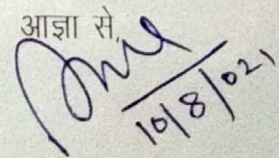 आज्ञा से,
10/8/021